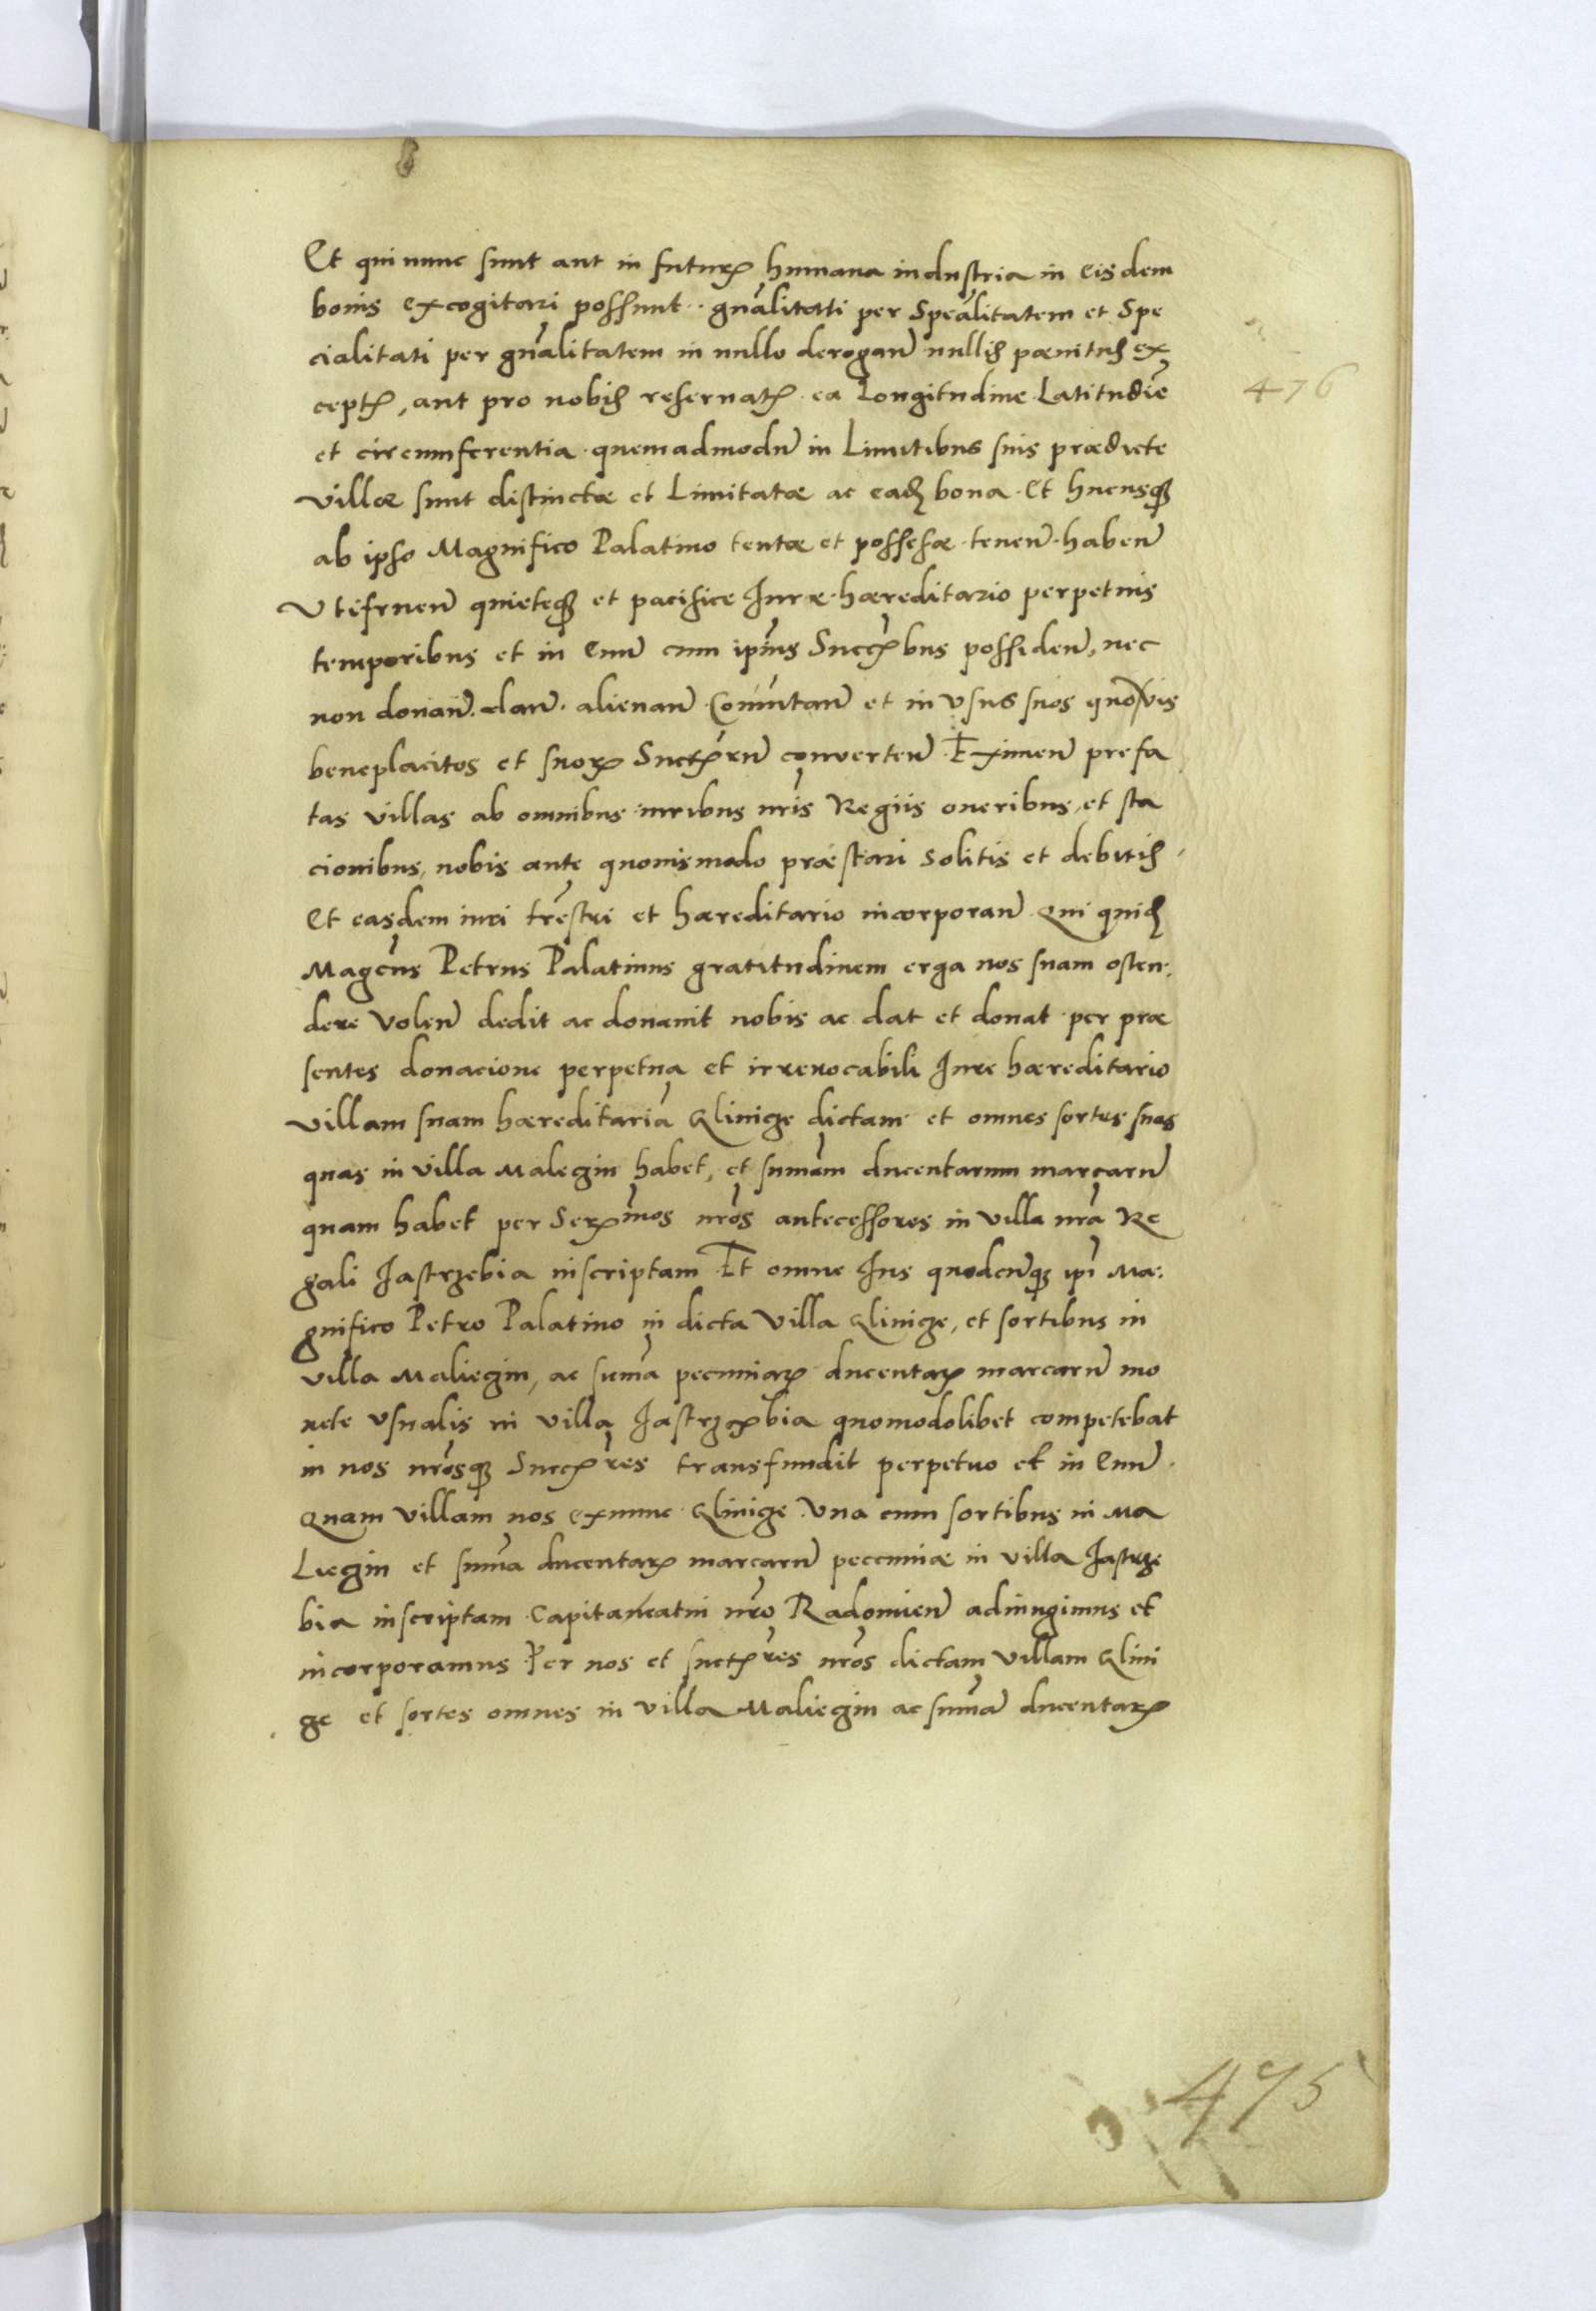 Et qui nunc sunt aut in futurꝝ humana industria in eisdem
bonis excogitari possunt. gnãlitati per Speãlitatem et Spe
cialitati per gnãlitatem in nullo derogan̄ nullis pænitus ex
ceptꝭ, aut pro nobis reseruatꝭ ea Longitudine Latitudiē
et circumferentia quemadmodū in Limitibus suis prædicte
villæ sunt distinctæ et Limitatæ ac eadē bona. Et hucusqꝫ
ab ipso Magnifico Palatino tentæ et possessæ tenen̄. haben̄
Vtifruen̄ quieteqꝫ et pacifice Iure hæreditario perpetuis
temporibus et in Euū cum ipīus Succꝝbus possiden̄, nec
non donan̄. dan̄. alienan̄ Comutan̄ et in vsus suos quovis
beneplacitos et suorꝝ Succꝝrū converten̄ Eximen̄ prefa
tas villas ab omnibus iuribus nr̄is Regiis oneribus, et sta
cionibus, nobis ante quouismodo præstari solitis et debitis
Et easdem iuri trēstri et hæreditario incorporan̄ Qui quidē
Magcūs Petrus Palatinus gratitudinem erga nos suam osten:
dere volen̄ dedit ac donauit nobis ac dat et donat per præ
sentes donacione perpetua et irreuocabili Iure hæreditario
villam suam hæreditariā Qlinige dictam et omnes sortes suas
quas in villa Malegin habet, et sumām ducentarum marcarū
quam habet per Serꝝmos nr̄os antecessores in villa nr̄a Re
gali Jastrzebia inscriptam Et omne Ius quodcūqꝫ ipī Ma:
gnifico Petro Palatino in dicta villa Qlinige, et sortibus in
villa Maliegin, ac suma pecuniarꝝ ducentarꝝ marcarū mo
nete vsualis in villa Jastrzębia quomodolibet competebat
in nos nr̄osqꝫ Succꝝres transfundit perpetuo et in Euū.
Quam villam nos exnunc Qlinige Vna cum sortibus in Ma
Liegin et suma ducentarꝝ marcarū peccuniæ in villa Jastrze
bia inscriptam Capitaneatui nr̄o Radomien̄ adiungimus et
incorporamus Per nos et succꝝres nr̄os dictam villam Qlini
ge et sortes omnes in villa Maliegin ac sumā ducentarꝝ
476
475